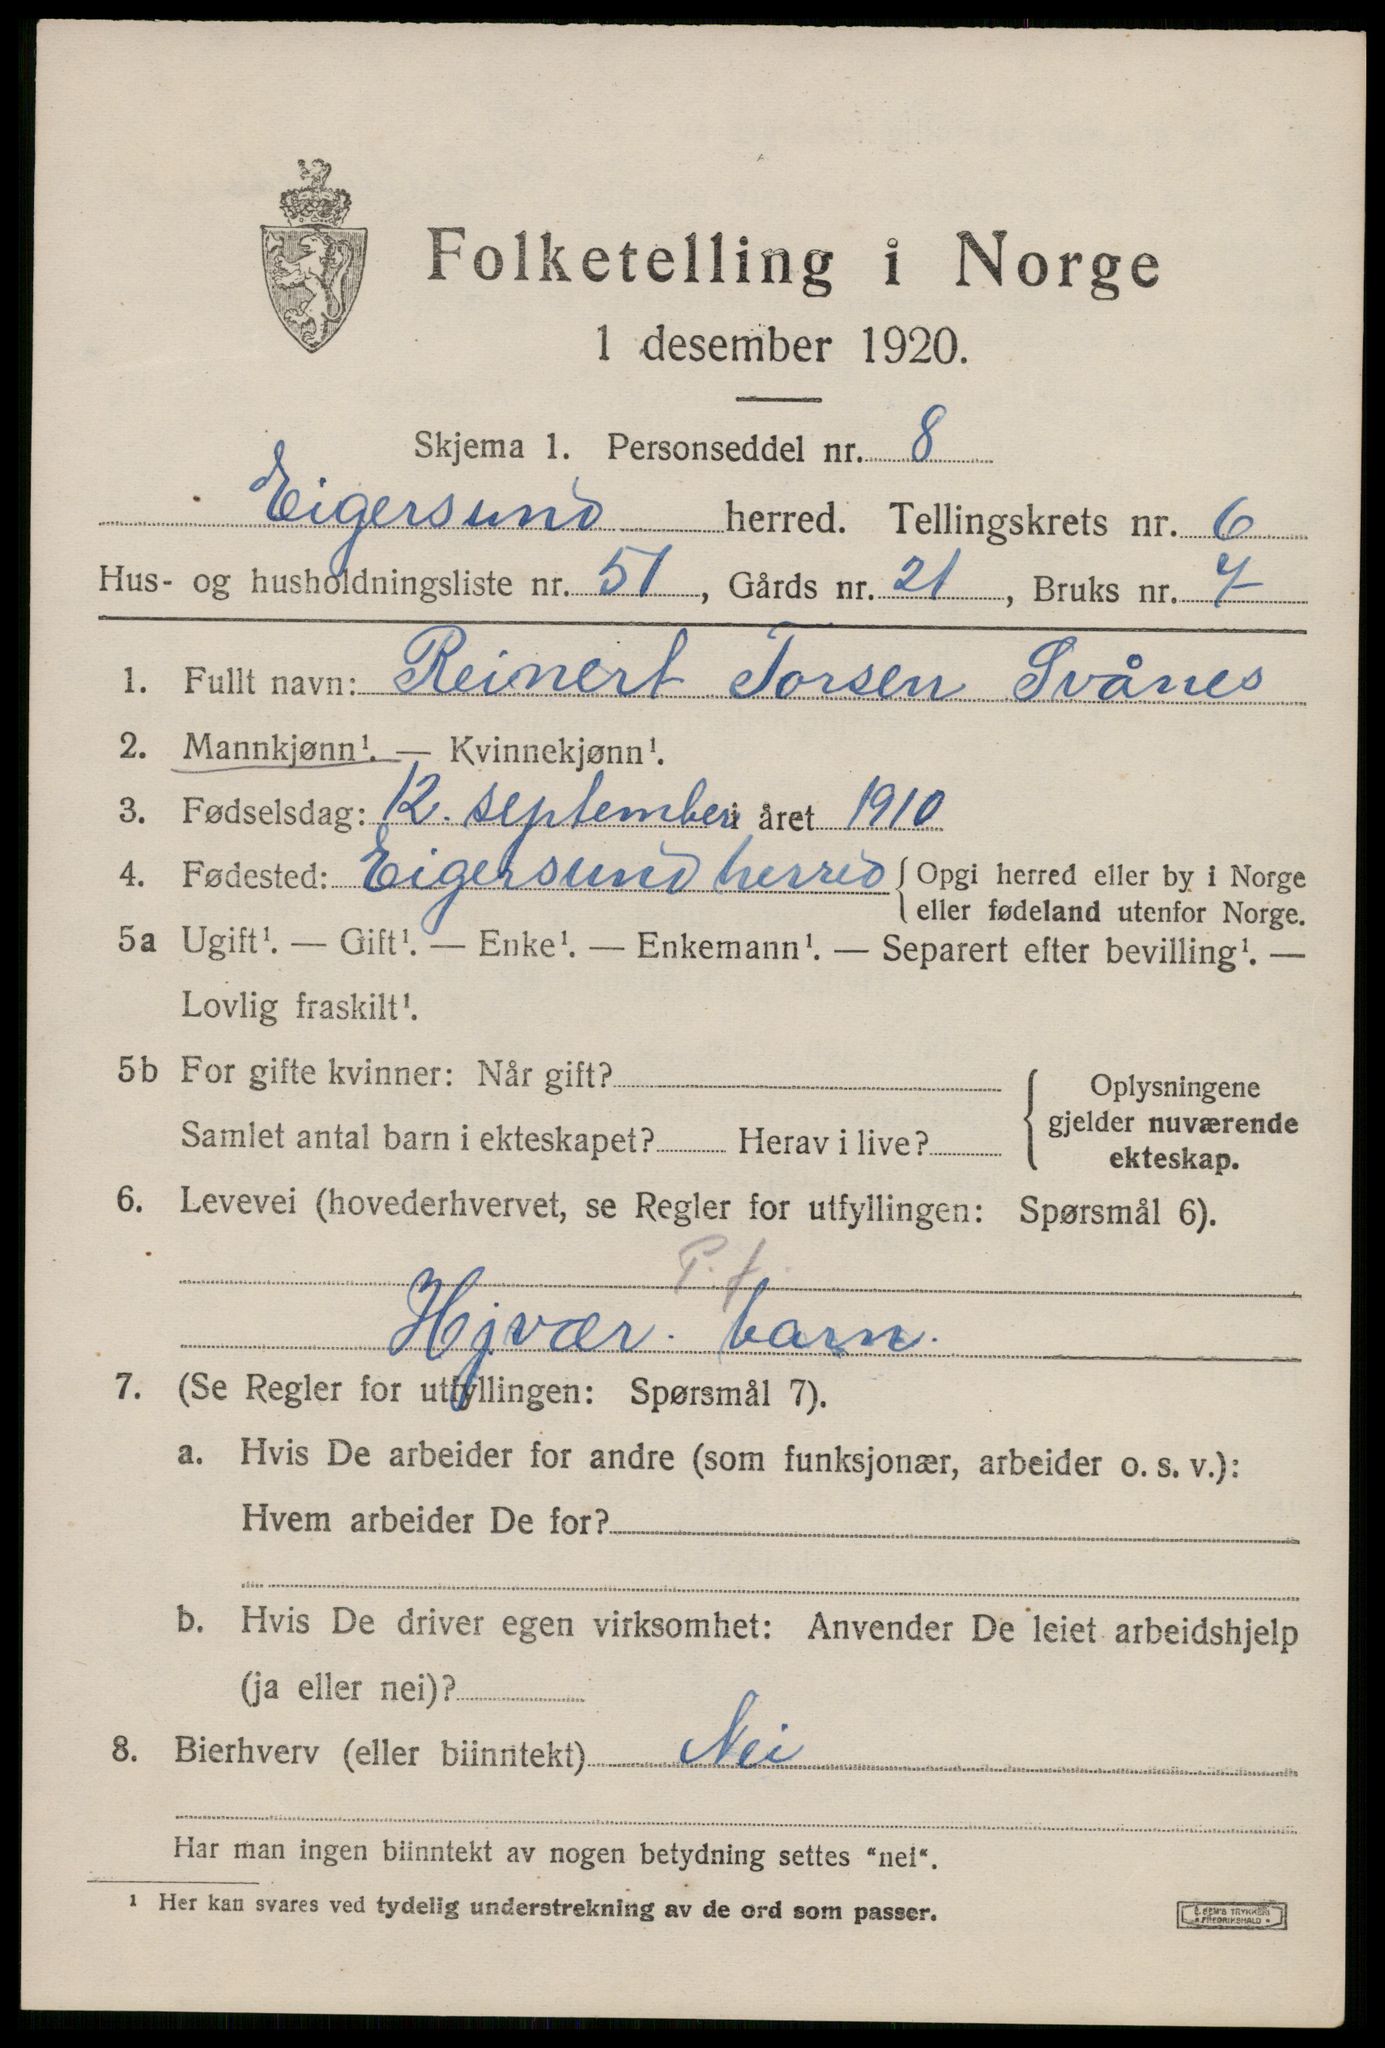 Folketelling i Norge
1 desember 1920.
Skjema 1. Personseddel nr. 8
Eigersund herred. Tellingskrets nr. 6
Hus- og husholdningsliste nr. 51, Gårds nr. 21, Bruks nr. 7
1. Fullt navn: Reinert Torsen Svånes
2. Mannkjønn¹. — Kvinnekjønn¹.
3. Fødselsdag: 12. september i året 1910
4. Fødested: Eigersund herred { Opgi herred eller by i Norge
eller fødeland utenfor Norge.
5a Ugift¹. — Gift¹. — Enke¹. — Enkemann¹. — Separert efter bevilling¹. —
Lovlig fraskilt¹.
5b For gifte kvinner: Når gift?
Samlet antal barn i ekteskapet? Herav i live?
{ Oplysningene
gjelder nuværende
ekteskap.
6. Levevei (hovederhvervet, se Regler for utfyllingen: Spørsmål 6).
P. f.
Hjvær. barn.
7. (Se Regler for utfyllingen: Spørsmål 7).
a. Hvis De arbeider for andre (som funksjonær, arbeider o. s. v.):
Hvem arbeider De for?
b. Hvis De driver egen virksomhet: Anvender De leiet arbeidshjelp
(ja eller nei)?
8. Bierhverv (eller biinntekt) Nei
Har man ingen biinntekt av nogen betydning settes "nei".
¹ Her kan svares ved tydelig understrekning av de ord som passer.
E. SEM'S TRYKKERI
FREDRIKSHALD